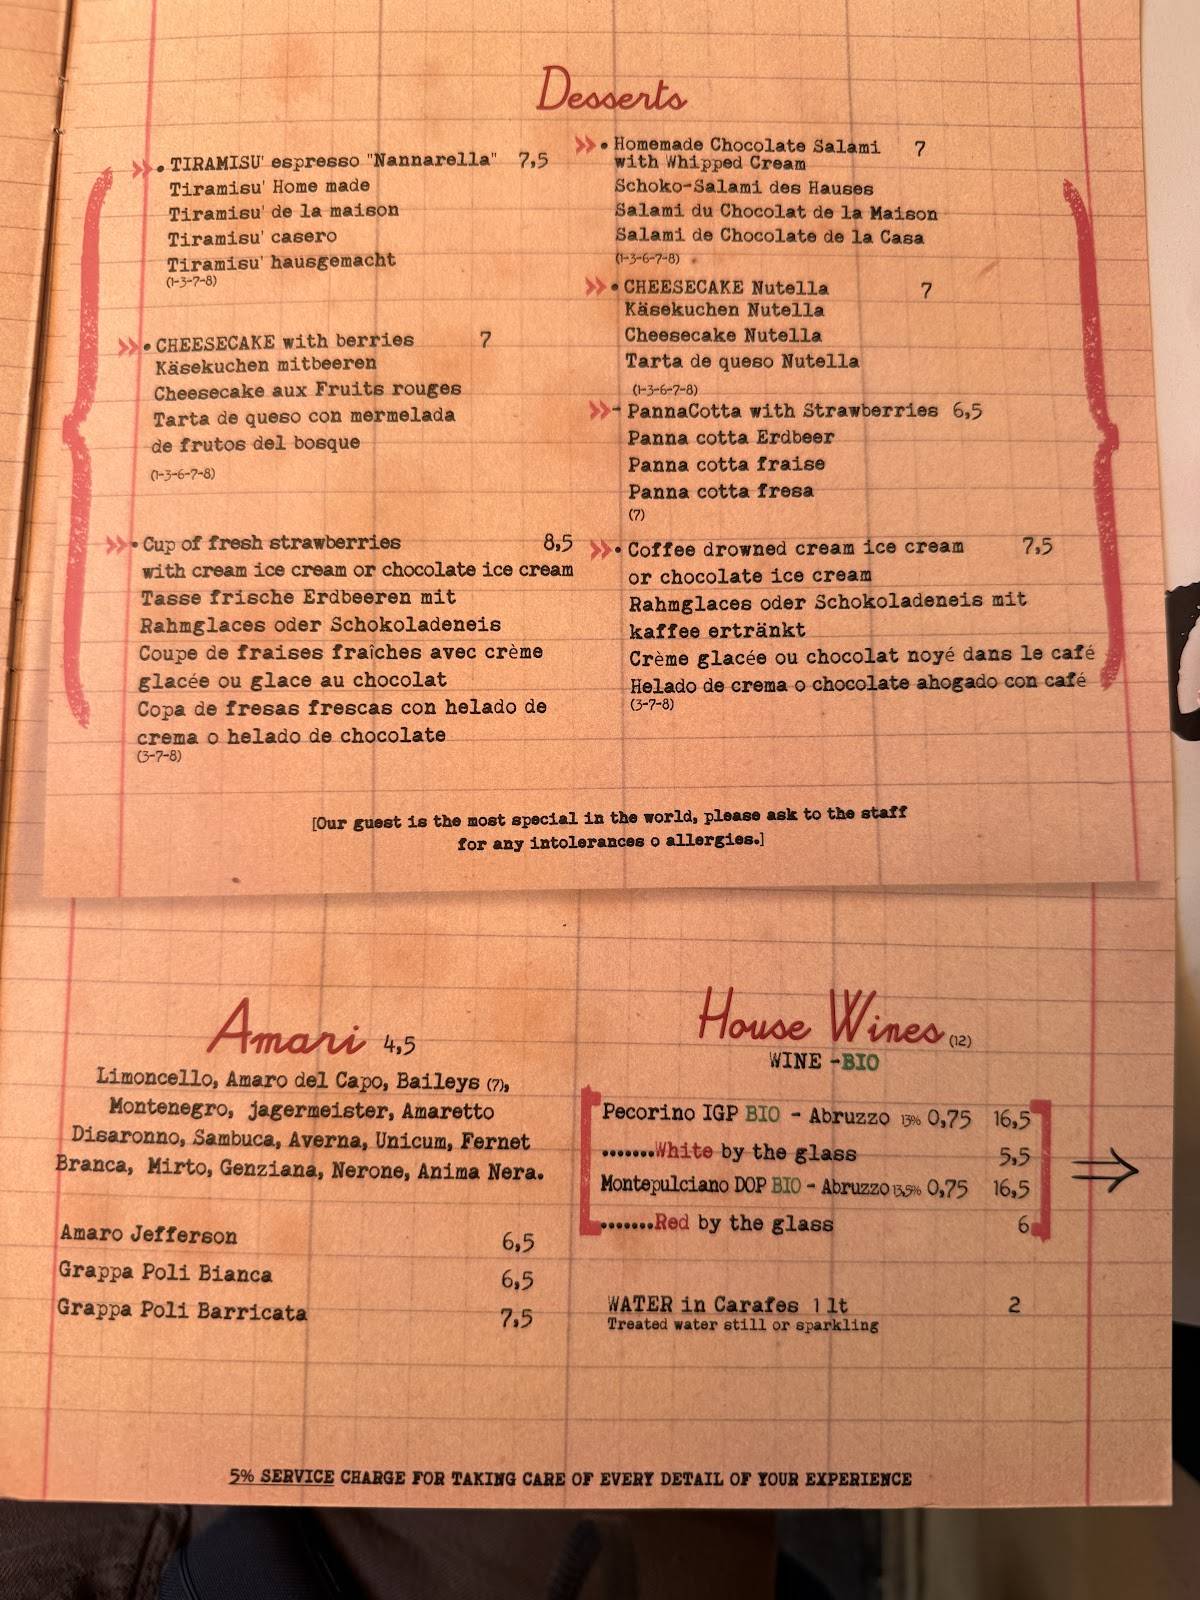 Desserts
• TIRAMISU' espresso "Nannarella" 7,5
Tiramisu' Home made
Tiramisu' de la maison
Tiramisu' casero
Tiramisu' hausgemacht
(1-3-7-8)
• CHEESECAKE with berries 7
Käsekuchen mitbeeren
Cheesecake aux Fruits rouges
Tarta de queso con mermelada
de frutos del bosque
(1-3-6-7-8)
• Cup of fresh strawberries 8,5
with cream ice cream or chocolate ice cream
Tasse frische Erdbeeren mit
Rahmglaces oder Schokoladeneis
Coupe de fraises fraîches avec crème
glacée ou glace au chocolat
Copa de fresas frescas con helado de
crema o helado de chocolate
(3-7-8)
• Homemade Chocolate Salami 7
with Whipped Cream
Schoko-Salami des Hauses
Salami du Chocolat de la Maison
Salami de Chocolate de la Casa
(1-3-6-7-8)
• CHEESECAKE Nutella 7
Käsekuchen Nutella
Cheesecake Nutella
Tarta de queso Nutella
(1-3-6-7-8)
- PannaCotta with Strawberries 6,5
Panna cotta Erdbeer
Panna cotta fraise
Panna cotta fresa
(7)
• Coffee drowned cream ice cream 7,5
or chocolate ice cream
Rahmglaces oder Schokoladeneis mit
kaffee ertränkt
Crème glacée ou chocolat noyé dans le café
Helado de crema o chocolate ahogado con café
(3-7-8)
[Our guest is the most special in the world, please ask to the staff
for any intolerances o allergies.]
Amari 4,5
Limoncello, Amaro del Capo, Baileys (7),
Montenegro, jagermeister, Amaretto
Disaronno, Sambuca, Averna, Unicum, Fernet
Branca, Mirto, Genziana, Nerone, Anima Nera.
Amaro Jefferson 6,5
Grappa Poli Bianca 6,5
Grappa Poli Barricata 7,5
House Wines (12)
WINE -BIO
Pecorino IGP BIO - Abruzzo 13% 0,75 16,5
.......White by the glass 5,5
Montepulciano DOP BIO - Abruzzo 13,5% 0,75 16,5
.......Red by the glass 6
WATER in Carafes 1 lt 2
Treated water still or sparkling
5% SERVICE CHARGE FOR TAKING CARE OF EVERY DETAIL OF YOUR EXPERIENCE